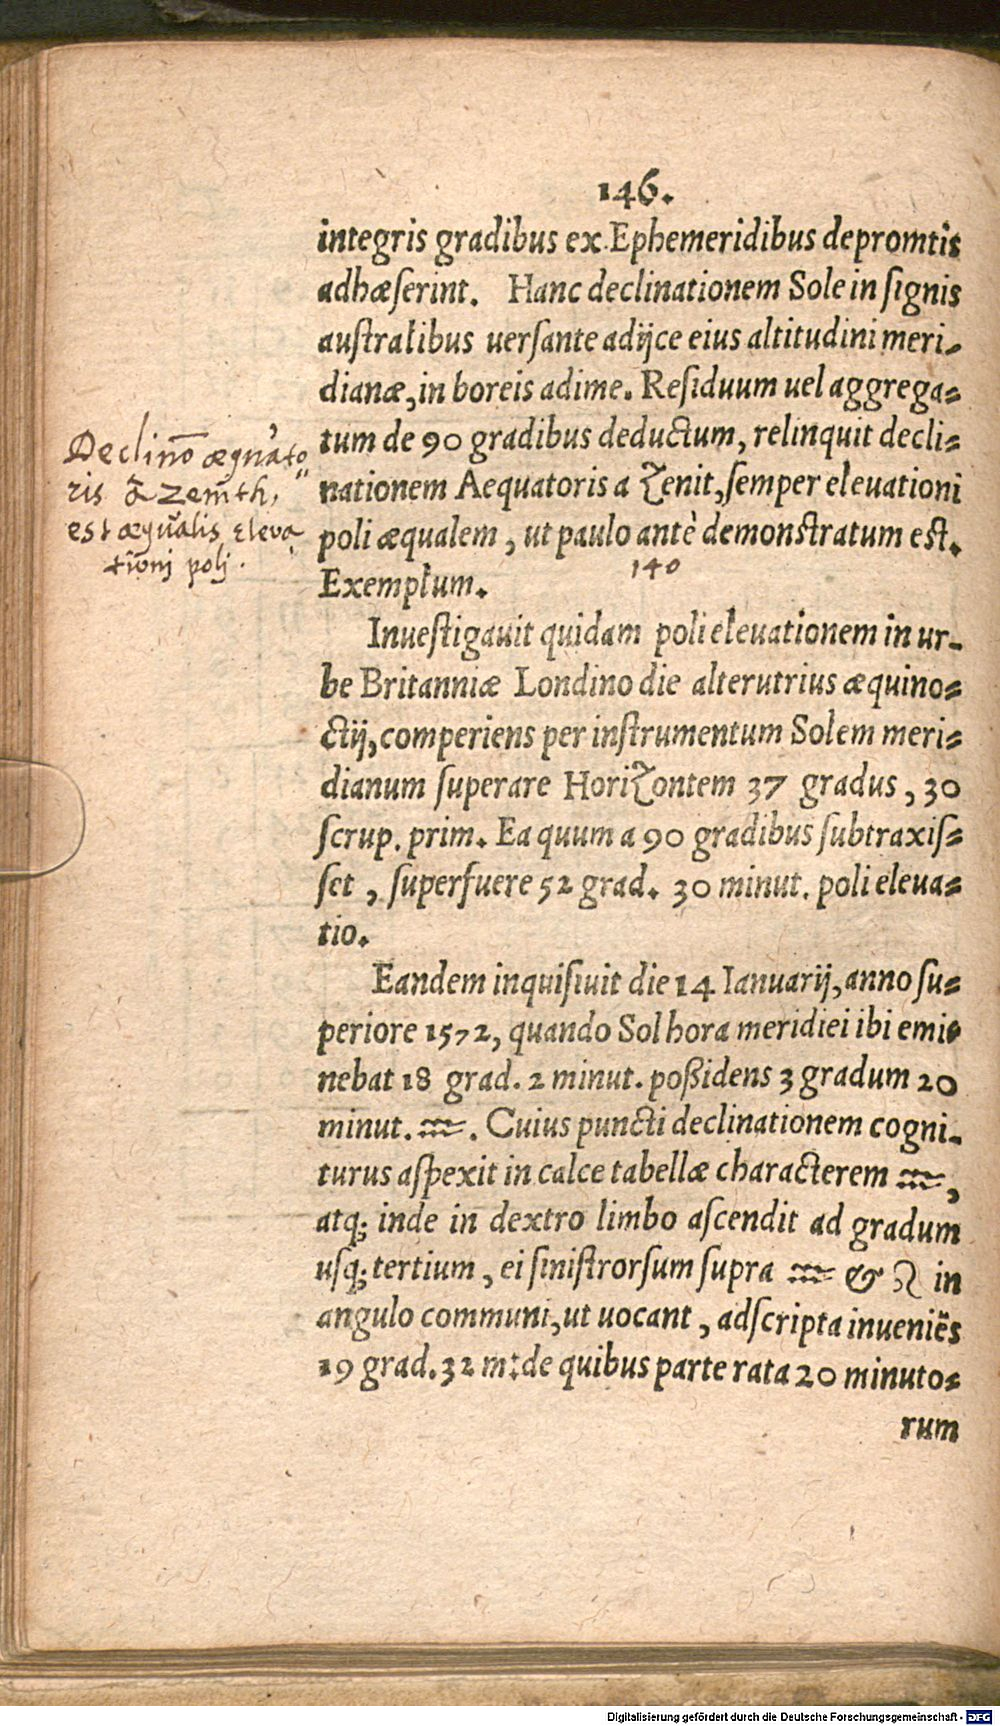 146.
integris gradibus ex Ephemeridibus depromtis
adhæſerint. Hanc declinationem Sole in ſignis
auſtralibus uerſante adijce eius altitudini meri-
dianæ, in boreis adime. Reſiduum uel aggrega=
tum de 90 gradibus deductum, relinquit decli=
nationem Aequatoris a Zenit, ſemper eleuationi
poli æqualem, ut paulo antè demonſtratum eſt.
140
Exemplum.
Declino͞ æquato
ris à̄ Zenith,
est æqualis eleva
tioni polj.
Inueſtigauit quidam poli eleuationem in ur-
be Britanniæ Londino die alterutrius æquino=
ctij, comperiens per inſtrumentum Solem meri=
dianum ſuperare Horizontem 37 gradus, 30
ſcrup. prim. Ea quum a 90 gradibus ſubtraxiſ=
ſet, ſuperfuere 52 grad. 30 minut. poli eleua=
tio.
Eandem inquiſiuit die 14 Ianuarij, anno ſu=
periore 1572, quando Sol hora meridiei ibi emi=
nebat 18 grad. 2 minut. poßidens 3 gradum 20
minut. ♒. Cuius puncti declinationem cogni-
turus aſpexit in calce tabellæ characterem ♒,
atq; inde in dextro limbo aſcendit ad gradum
uſq; tertium, ei ſiniſtrorſum ſupra ♒ & ♌ in
angulo communi, ut uocant, adſcripta inueniẽs
19 grad. 32 m: de quibus parte rata 20 minuto=
rum
Digitalisierung gefördert durch die Deutsche Forschungsgemeinschaft - DFG